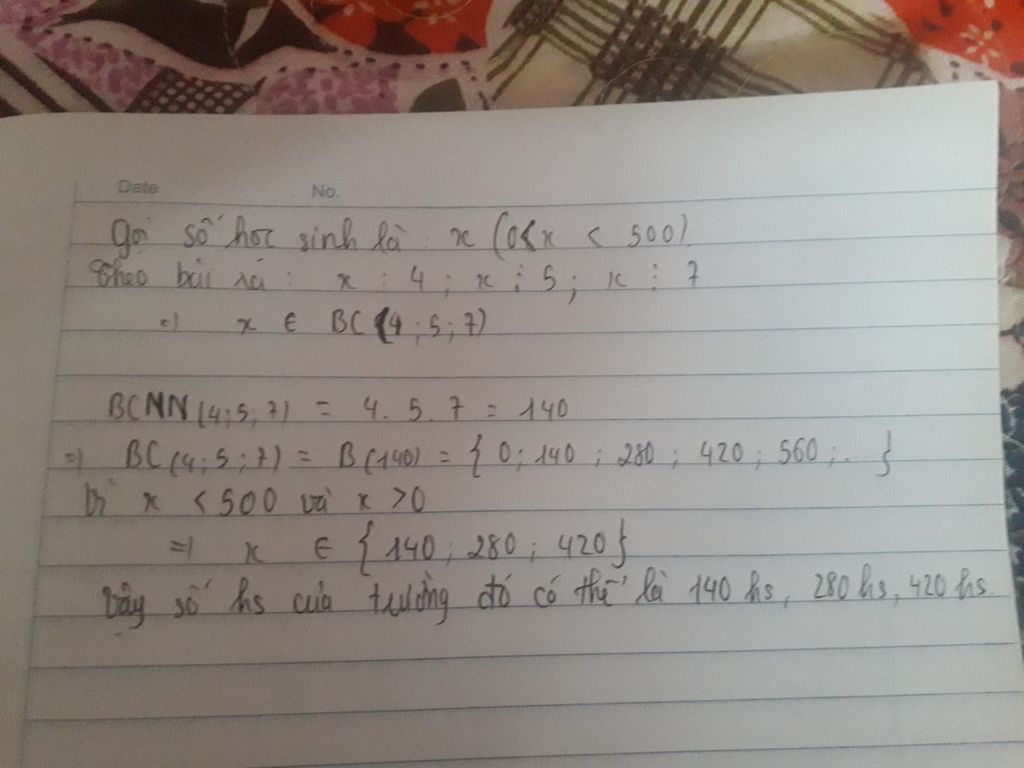 Date No.
Gọi số học sinh là x (0<x < 500)
Theo bài ra: x ⋮ 4 ; x ⋮ 5 ; x ⋮ 7
=> x ∈ BC (4 ; 5 ; 7)
BCNN(4;5;7) = 4. 5. 7 = 140
=> BC(4;5;7) = B(140) = { 0; 140 ; 280 ; 420 ; 560 ;... }
Vì x < 500 và x >0
=> x ∈ { 140 ; 280 ; 420}
Vậy số hs của trường đó có thể là 140 hs, 280 hs, 420 hs.